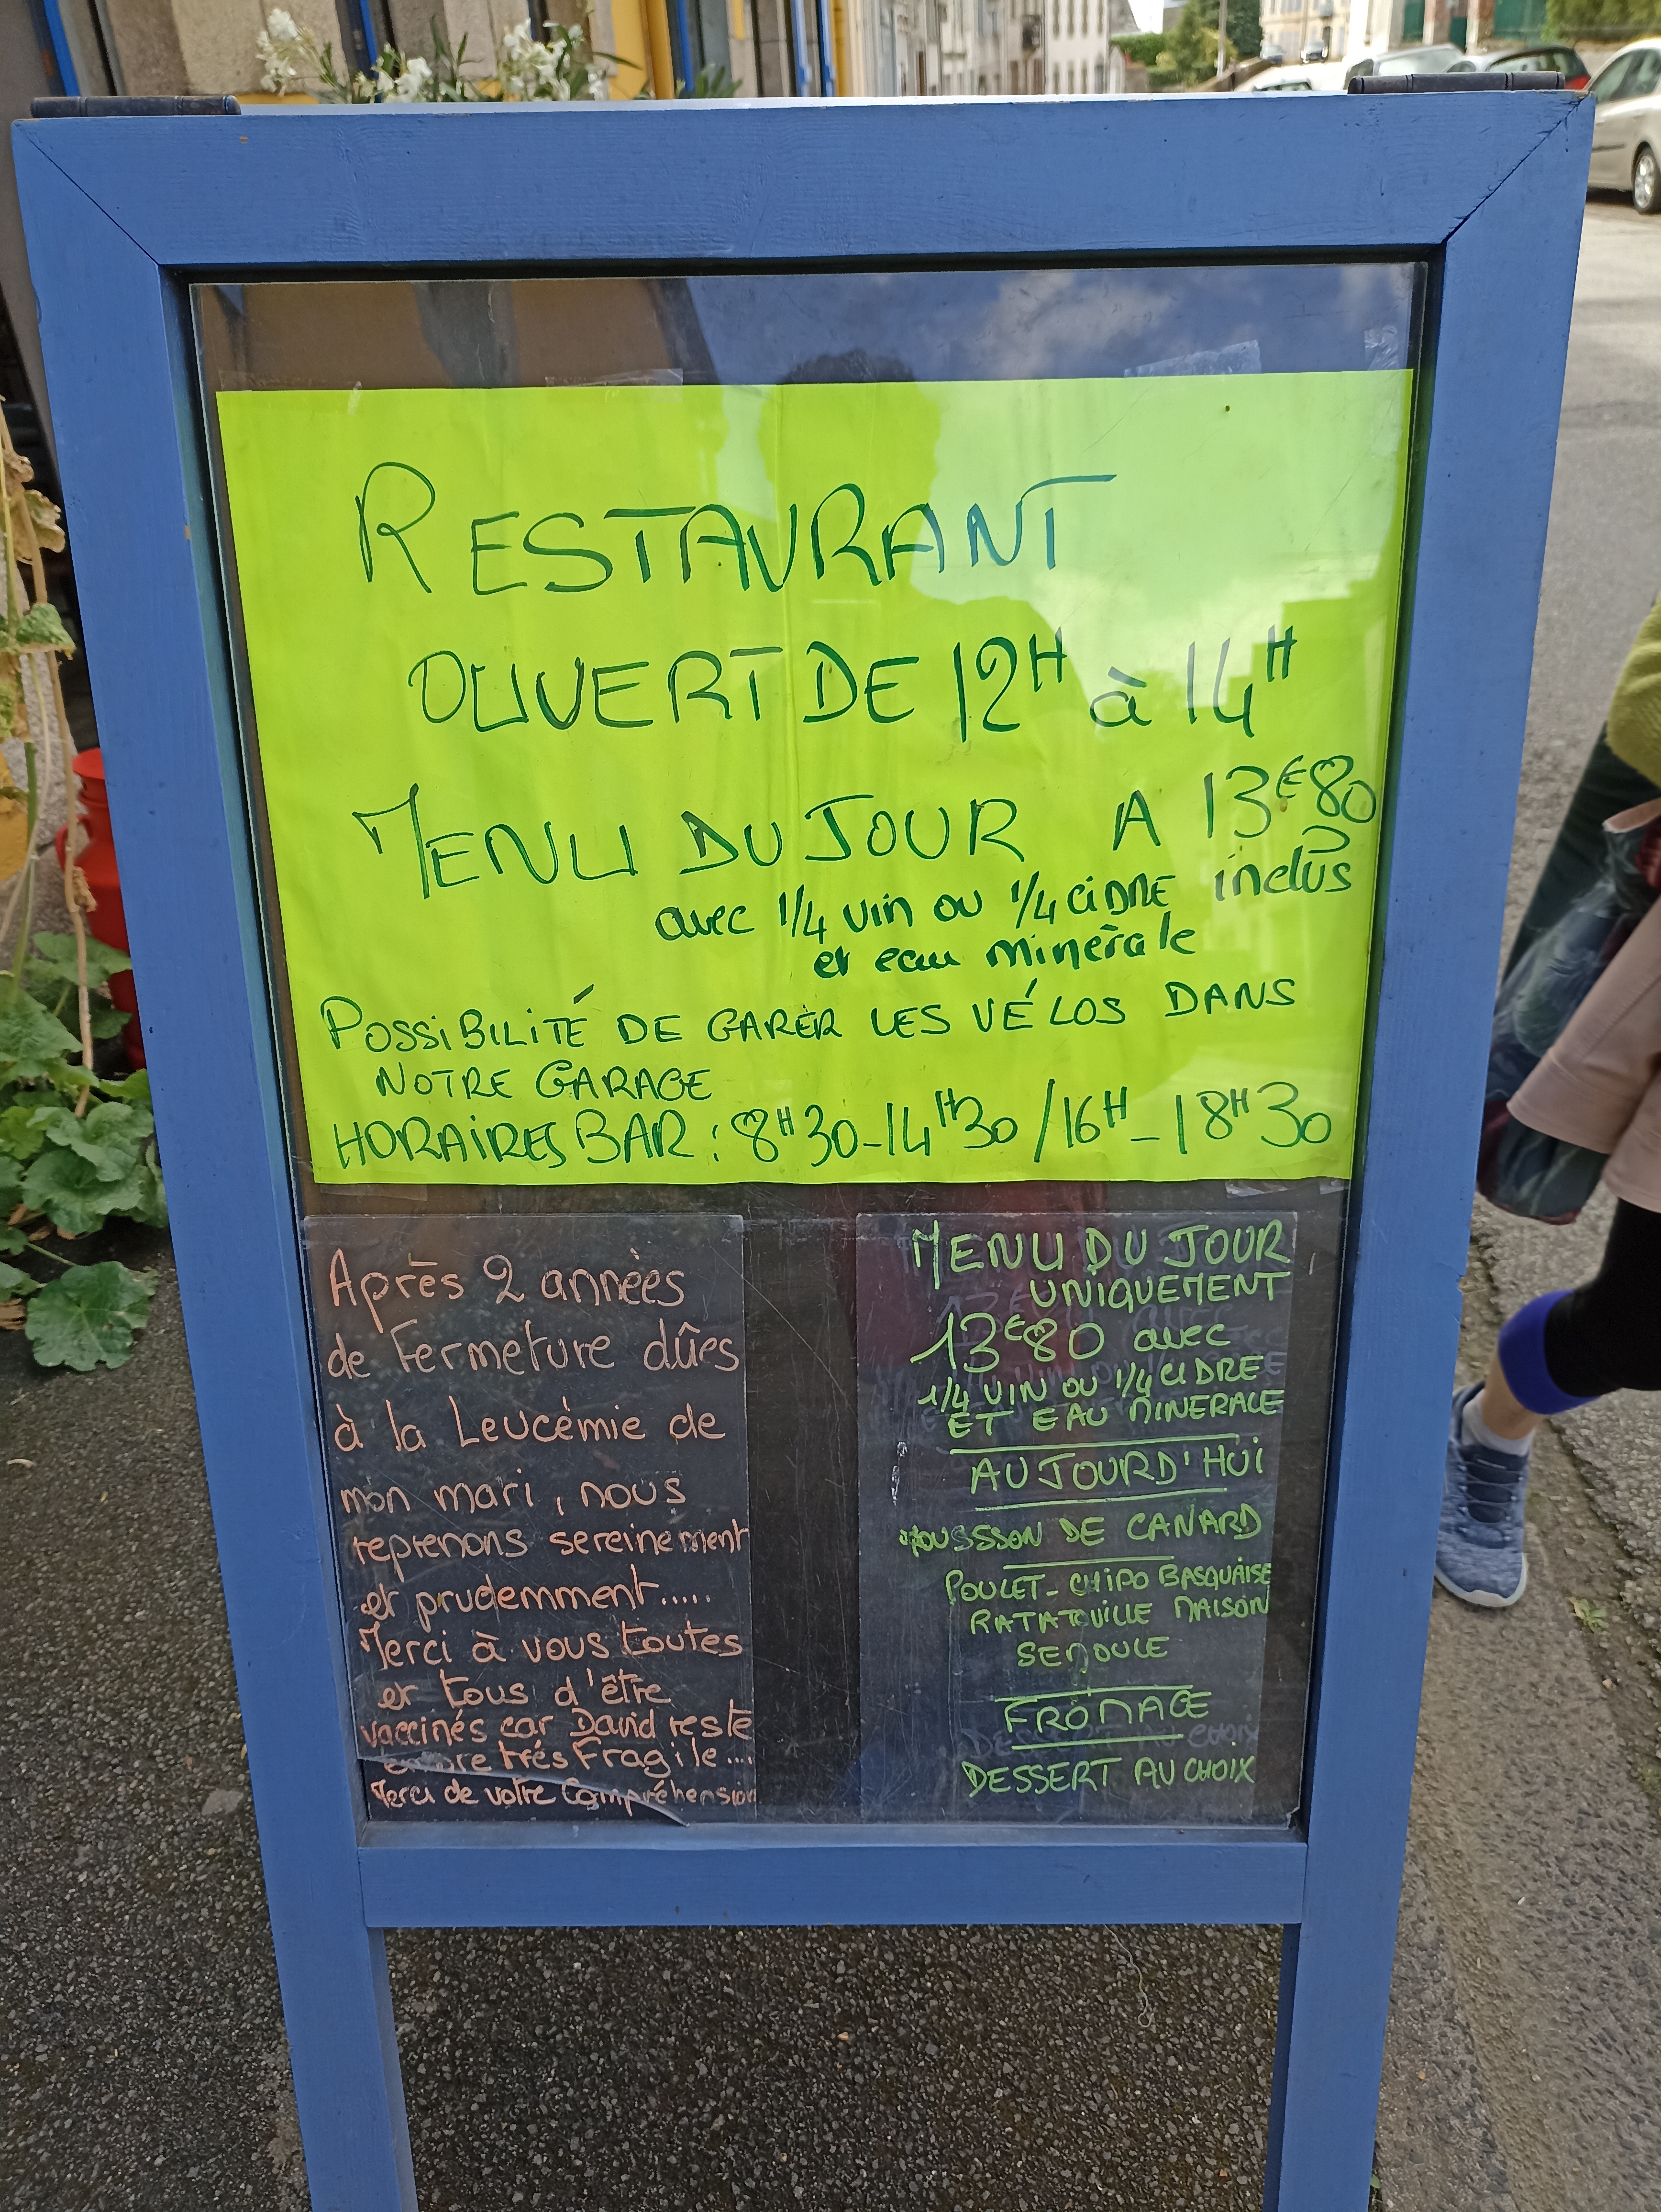 RESTAURANT
OUVERT DE 12H à 14H
MENU DU JOUR A 13€80
avec 1/4 vin ou 1/4 CIDRE inclus
et eau minérale
POSSIBILITÉ DE GARER LES VÉLOS DANS
NOTRE GARAGE
HORAIRES BAR : 8H30-14H30 / 16H-18H30
Après 2 années
de Fermeture dûes
à la Leucémie de
mon mari, nous
reprenons sereinement
et prudemment.....
Merci à vous toutes
et tous d'être
vaccinés car David reste
encore très Fragile...
Merci de votre Compréhension
MENU DU JOUR
UNIQUEMENT
13€80 avec
1/4 VIN OU 1/4 CIDRE
ET EAU MINERALE
AUJOURD'HUI
MOUSSSON DE CANARD
POULET-CHIPO BASQUAISE
RATATOUILLE MAISON
SEMOULE
FROMAGE
DESSERT AU CHOIX